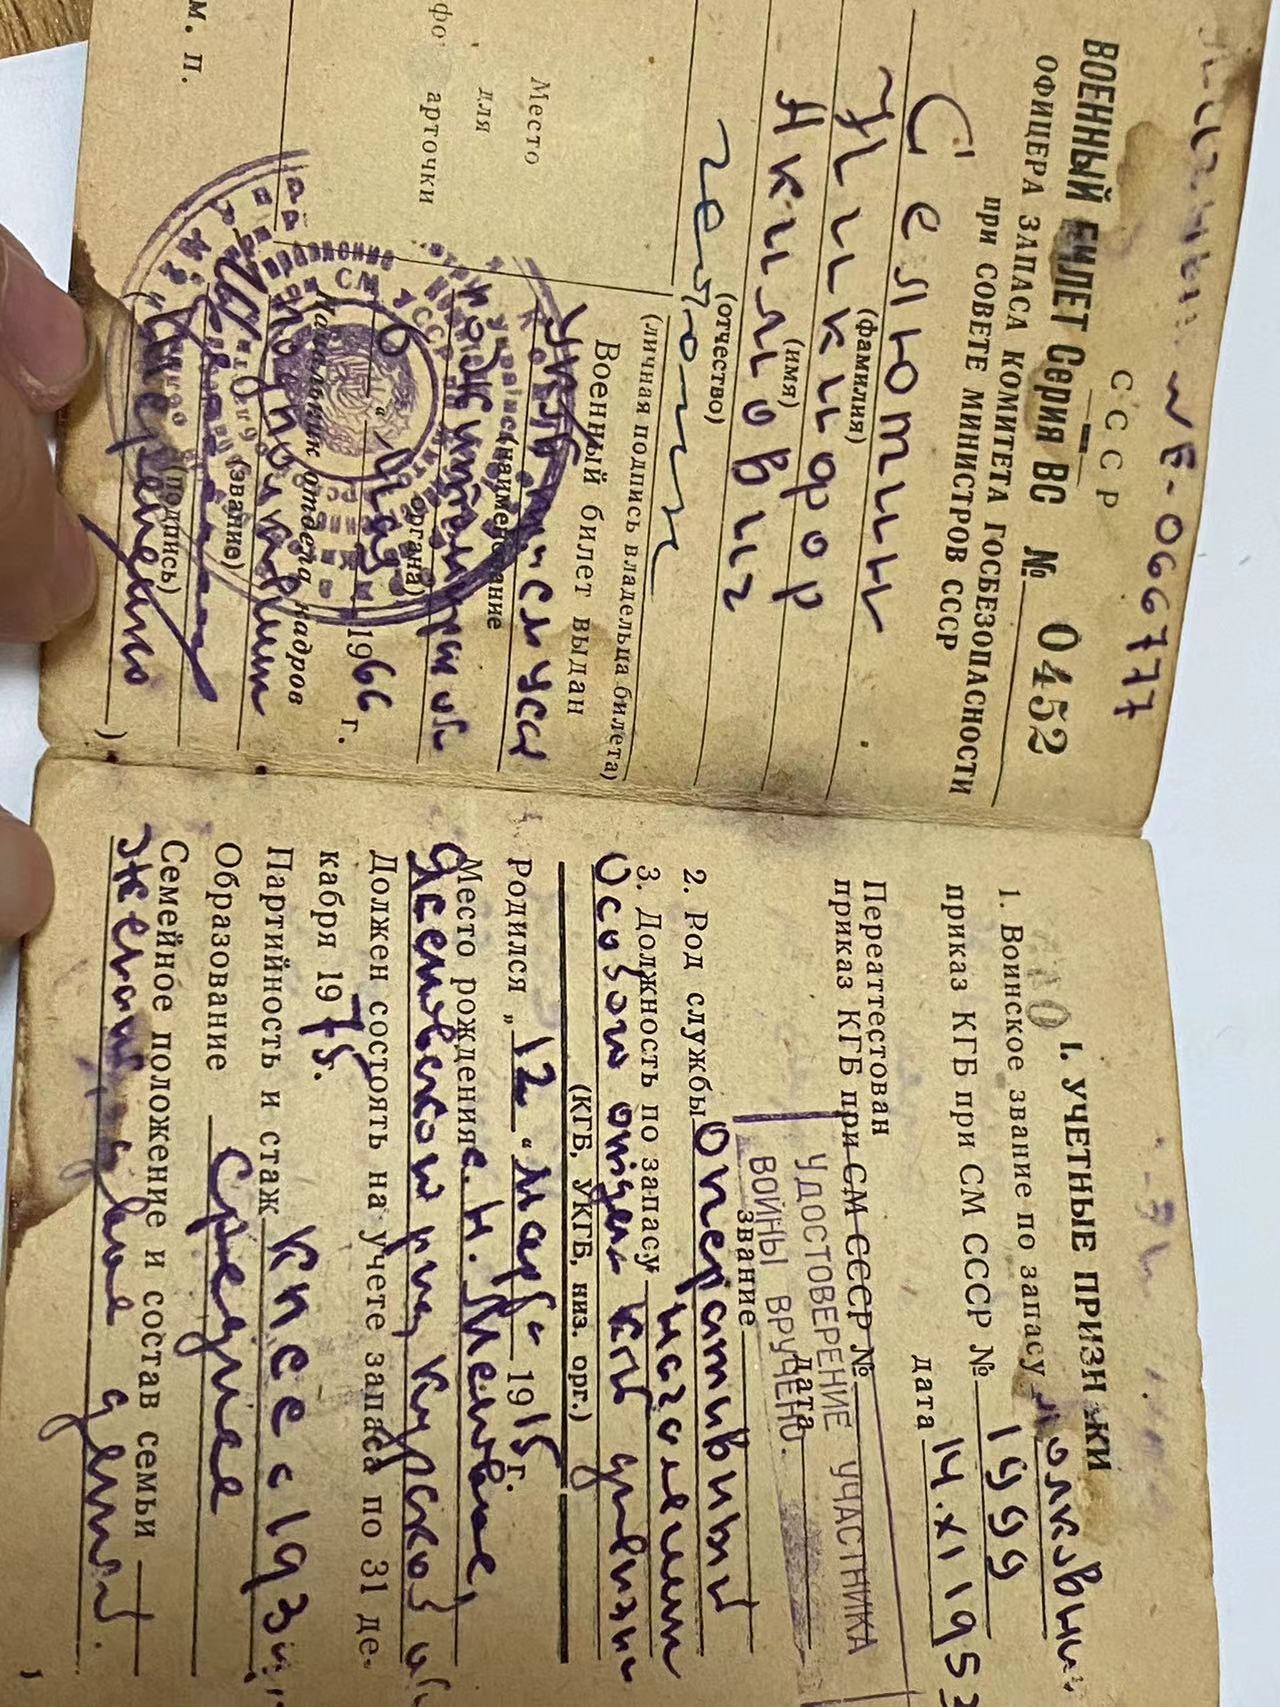 №-066777
СССР
ВОЕННЫЙ БИЛЕТ Серия ВС № 0452
ОФИЦЕРА ЗАПАСА КОМИТЕТА ГОСБЕЗОПАСНОСТИ
при СОВЕТЕ МИНИСТРОВ СССР
Селютин
(фамилия)
Никифор
(имя)
Акимович
(отчество)
(личная подпись владельца билета)
Место
для
фо арточки
м. п.
Военный билет выдан
(наименование
органа)
1966 г.
Начальник отдела кадров
Подполковник
(звание)
(подпись)
)
I. УЧЕТНЫЕ ПРИЗНАКИ
1. Воинское звание по запасу полковник
приказ КГБ при СМ СССР № 1999
дата 14.XI 195
Переаттестован
приказ КГБ при СМ СССР №
дата
звание
УДОСТОВЕРЕНИЕ УЧАСТНИКА
ВОЙНЫ ВРУЧЕНО.
2. Род службы Оперативный
3. Должность по запасу начальник
Особого отдела КГБ дивизии
(КГБ, УКГБ, низ. орг.)
Родился „12“ марта 1915 г.
Место рождения с. Н.
района, Курской
Должен состоять на учете запаса по 31 де-
кабря 1975.
Партийность и стаж КПСС с 193
Образование Среднее
Семейное положение и состав семьи
Женат, двое детей.
1